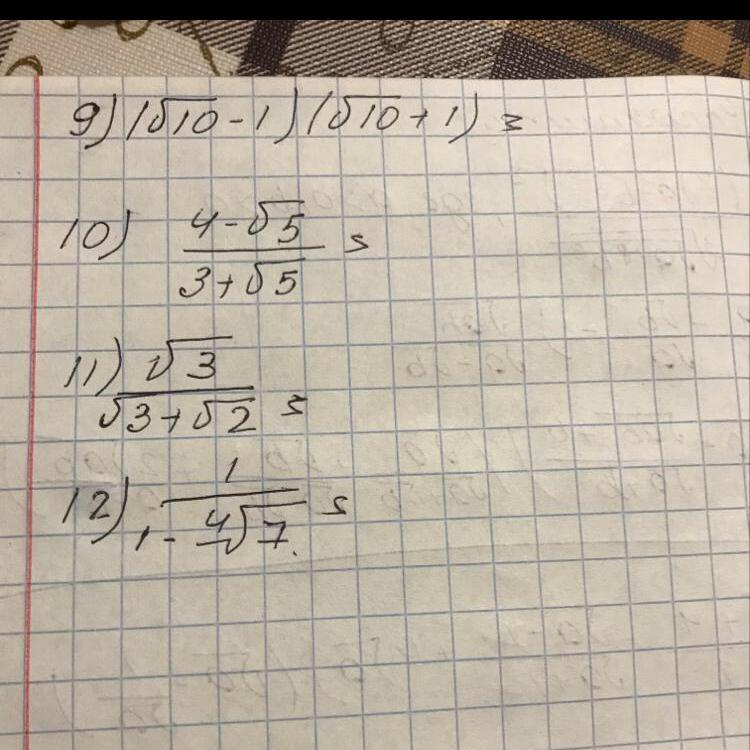 9) (√10 - 1) (√10 + 1) =
10) (4 - √5)/(3 + √5) =
11) √3/(√3 + √2) =
12) 1/(1 - ∜7) =